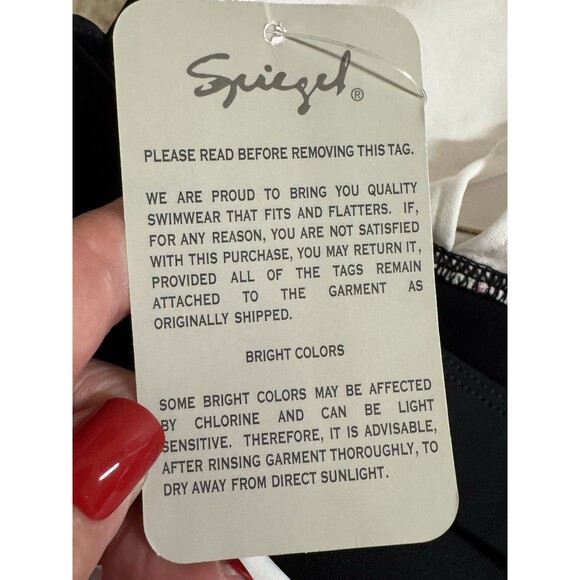 Spiegel®
PLEASE READ BEFORE REMOVING THIS TAG.
WE ARE PROUD TO BRING YOU QUALITY
SWIMWEAR THAT FITS AND FLATTERS. IF,
FOR ANY REASON, YOU ARE NOT SATISFIED
WITH THIS PURCHASE, YOU MAY RETURN IT,
PROVIDED ALL OF THE TAGS REMAIN
ATTACHED TO THE GARMENT AS
ORIGINALLY SHIPPED.
BRIGHT COLORS
SOME BRIGHT COLORS MAY BE AFFECTED
BY CHLORINE AND CAN BE LIGHT
SENSITIVE. THEREFORE, IT IS ADVISABLE,
AFTER RINSING GARMENT THOROUGHLY, TO
DRY AWAY FROM DIRECT SUNLIGHT.